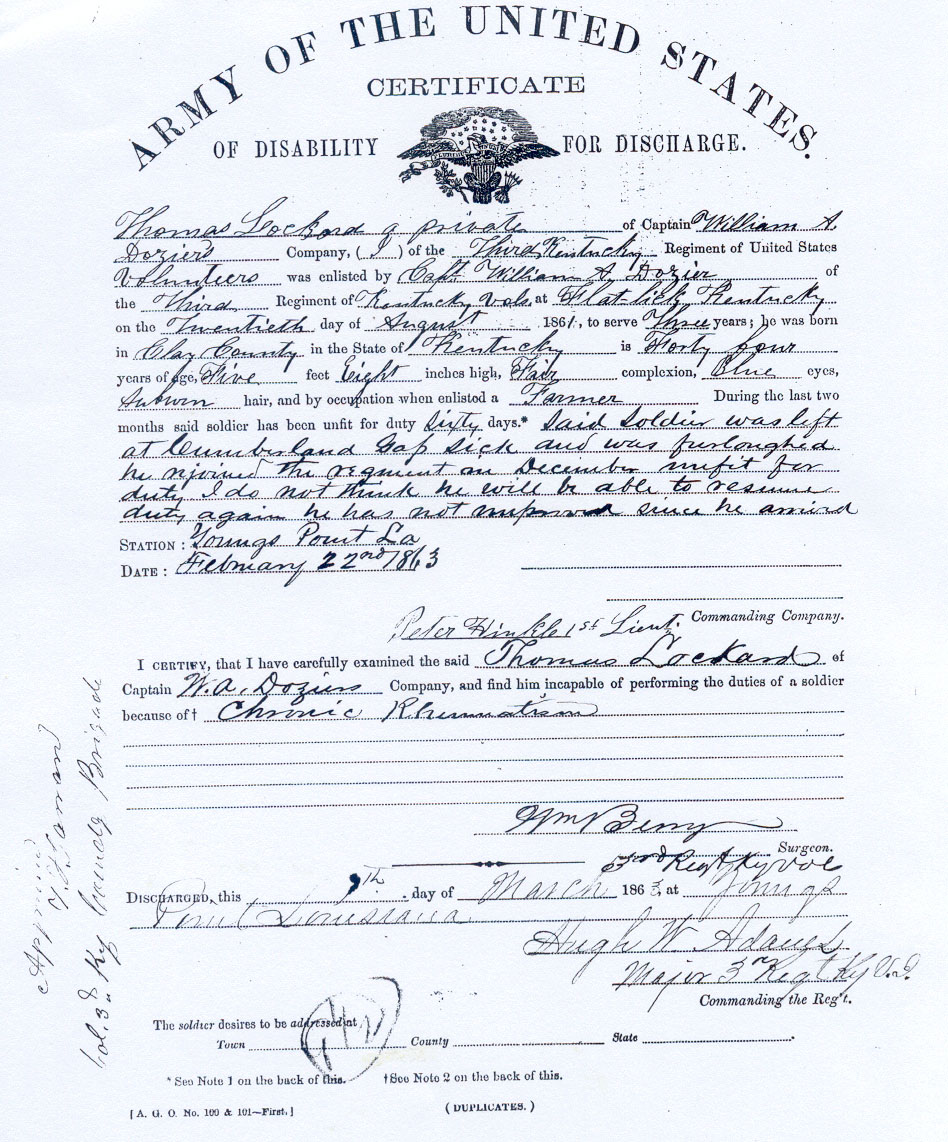 ARMY OF THE UNITED STATES.
CERTIFICATE
OF DISABILITY FOR DISCHARGE.
Thomas Lockard a private of Captain William A.
Doziers Company, ( I ) of the Third Kentucky Regiment of United States
Volunteers was enlisted by Capt. William A. Dozier of
the Third Regiment of Kentucky Vols at Flat-lick, Kentucky
on the Twentieth day of August 1861, to serve Three years; he was born
in Clay County in the State of Kentucky is Forty four
years of age, Five feet Eight inches high, Fair complexion, Blue eyes,
hair, and by occupation when enlisted a Farmer During the last two
months said soldier has been unfit for duty Sixty days.* Said Soldier was left
at Cumberland Gap sick and was furloughed
he rejoined the regment on December unfit for
duty I do not think he will be able to resume
duty again he has not improved since he arrived
STATION: Youngs Point La
DATE: February 22nd 1863
Commanding Company.
Peter Hinkle 1st Lieut.
I CERTIFY, that I have carefully examined the said Thomas Lockard of
Captain W. A. Doziers Company, and find him incapable of performing the duties of a soldier
because of† Chronic Rheumatism
Wm Berry
Surgeon.
3rd Regt Ky Vols
DISCHARGED, this 9th day of March 1863 at Youngs
Point Louisiana
Hugh W Adams
Major 3rd Regt Ky V.I.
Commanding the Reg't.
The soldier desires to be addressed at
Town County State
* See Note 1 on the back of this. †See Note 2 on the back of this.
[A. G. O. No. 100 & 101—First.] (DUPLICATES.)
Approved
Col. 3d Ky Brigade